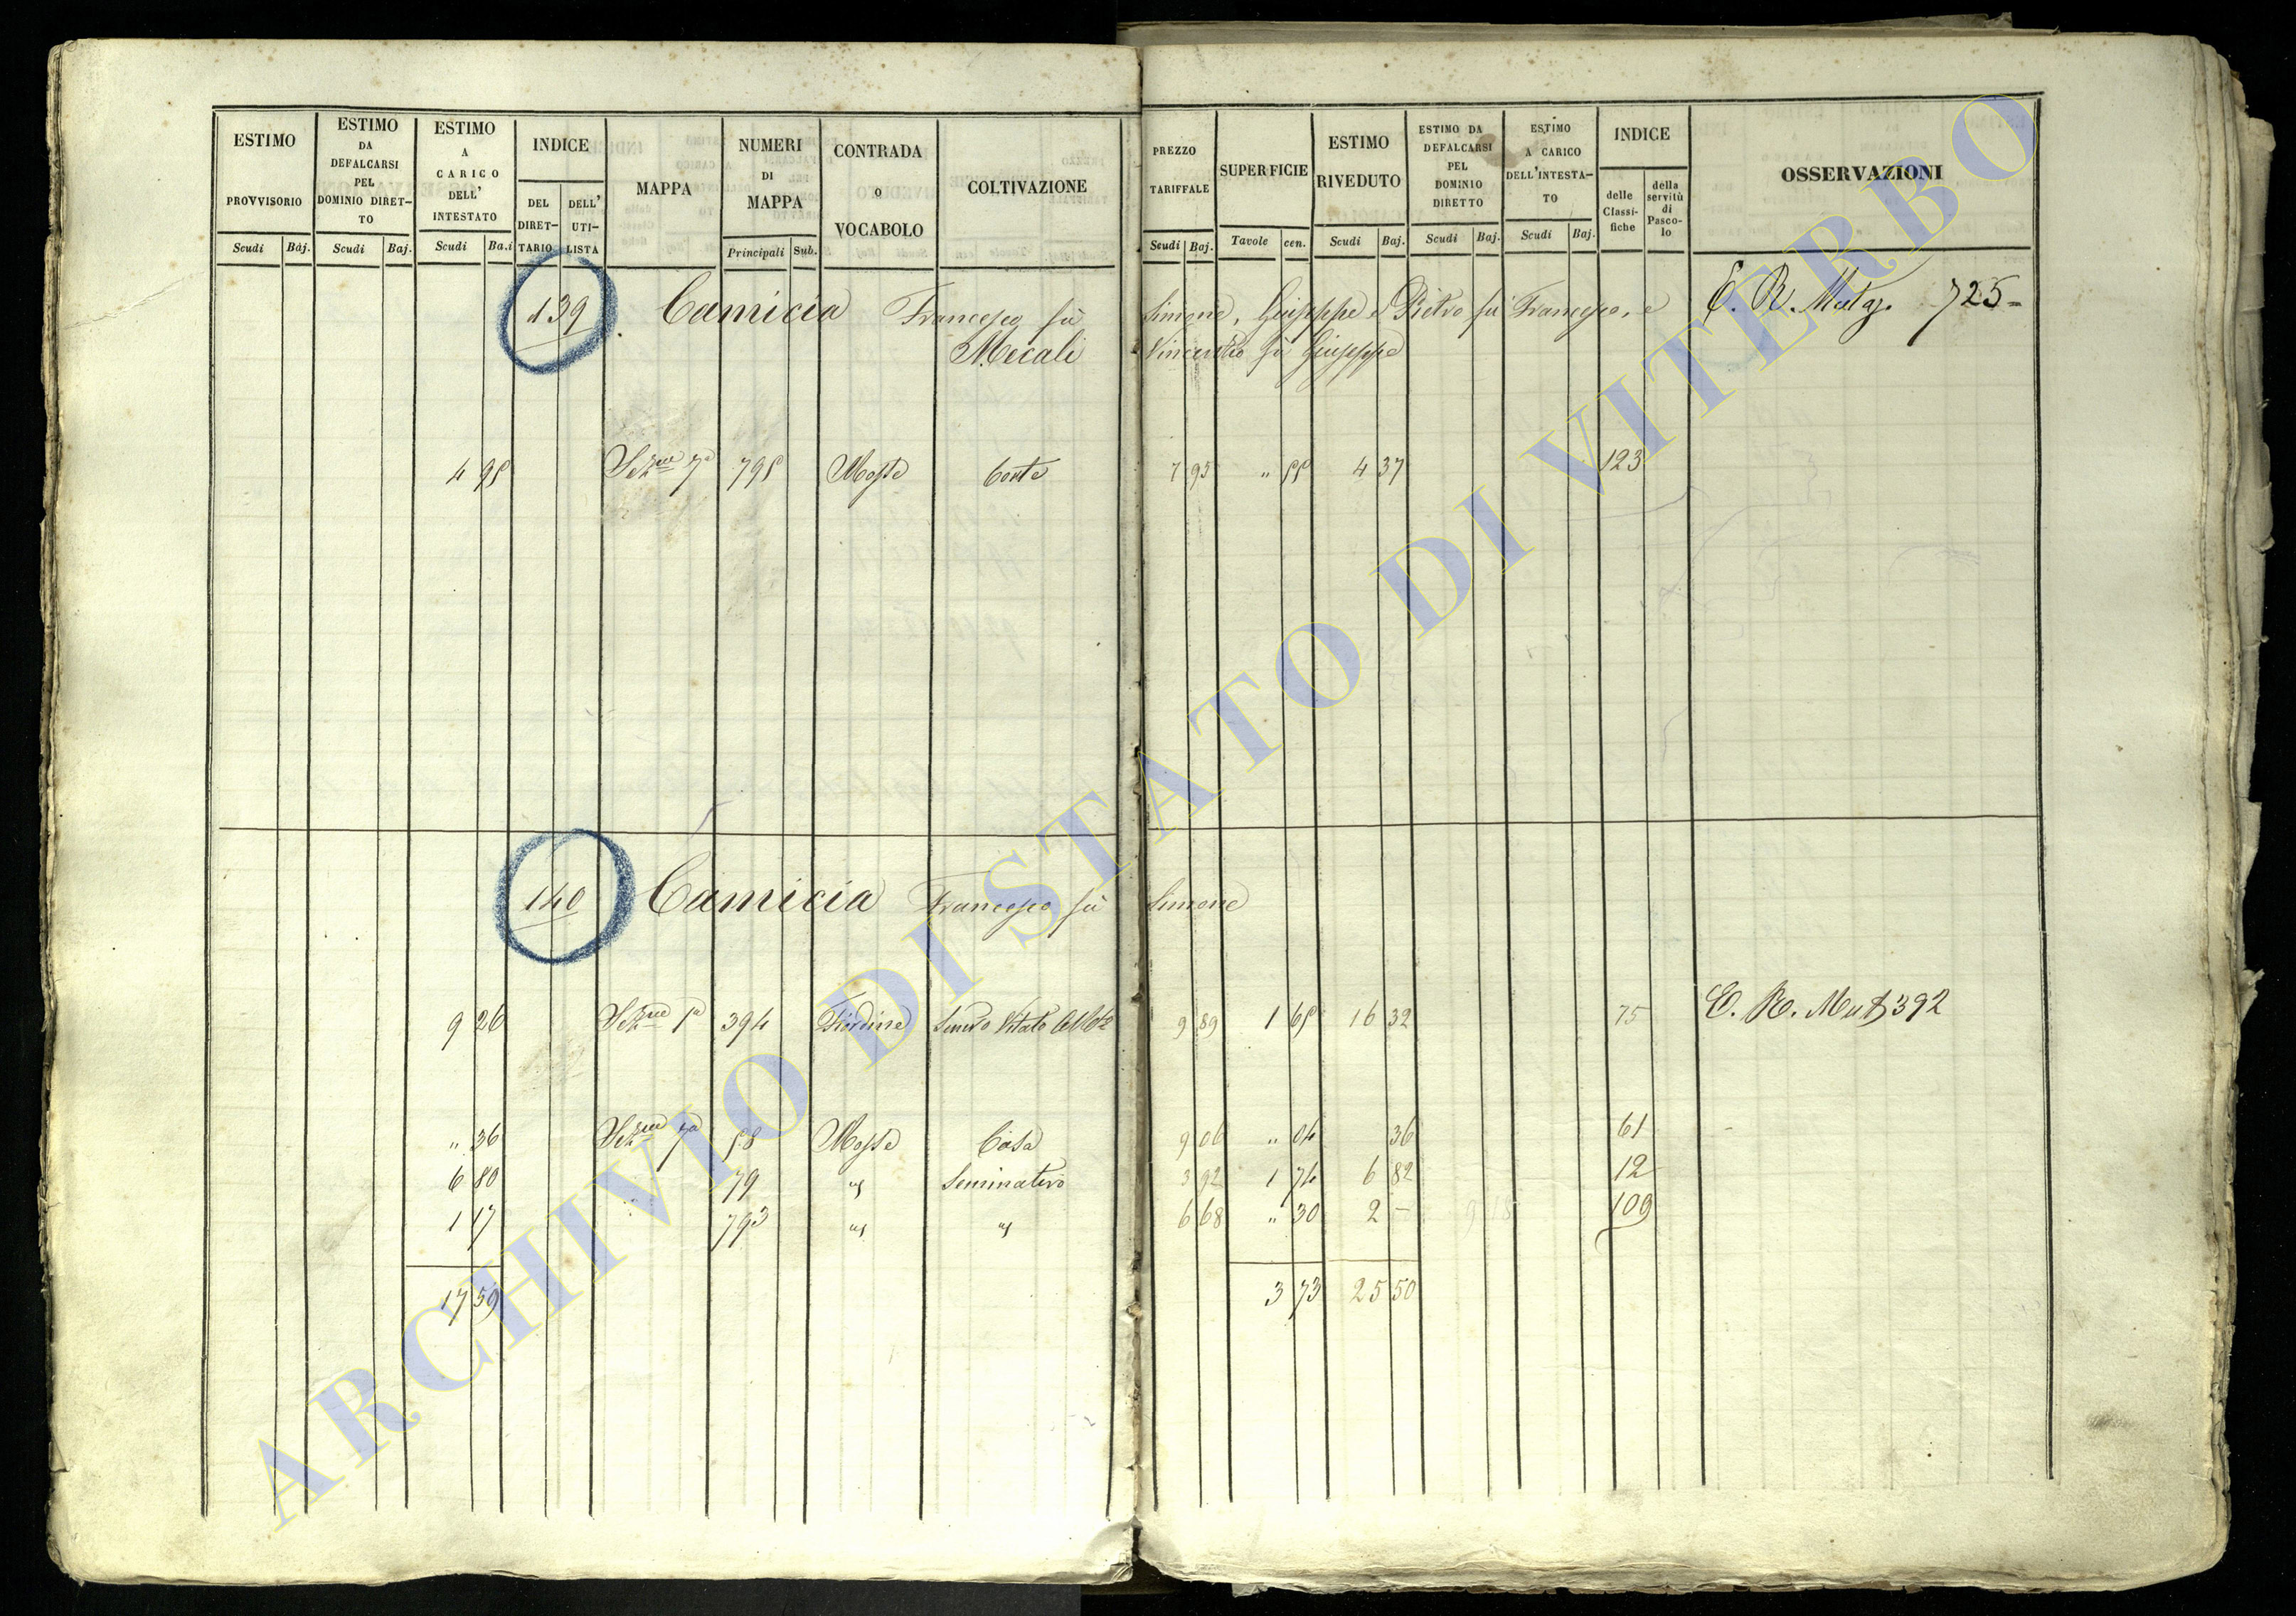 ESTIMO PROVVISORIO
ESTIMO DA DEFALCARSI PEL DOMINIO DIRET-TO
ESTIMO A CARICO DELL' INTESTATO
INDICE
DEL DIRET-TARIO
DELL' UTI-LISTA
MAPPA
NUMERI DI MAPPA
CONTRADA o VOCABOLO
COLTIVAZIONE
PREZZO TARIFFALE
SUPERFICIE
ESTIMO RIVEDUTO
ESTIMO DA DEFALCARSI PEL DOMINIO DIRETTO
ESTIMO A CARICO DELL'INTESTA-TO
INDICE
delle Classi-fiche
della servitù di Pasco-lo
OSSERVAZIONI
Scudi Baj. Scudi Baj. Scudi Ba.i Principali Sub. Scudi Baj. Tavole cen. Scudi Baj. Scudi Baj. Scudi Baj.
139 Camicia Francesco fù Simone, Giuseppe e Pietro fù Francesco, e E. R. Mutaz. 725
Mecali Vincenzo fù Giuseppe
4 95 Sezne 7a 795 Mosse Corte 7 95 " 55 4 37 123
140 Camicia Francesco fù Simone
9 26 Sezne 1a 394 Fiordine 9 89 1 65 16 32 75 E. R. Mut 392
" 36 Sezne 7a 58 Mosse Casa 9 06 " 04 36 61
6 80 79 " Seminativo 3 92 1 74 6 82 12
1 17 793 " " 6 68 " 30 2 - 109
17 59 3 73 25 50
ARCHIVIO DI STATO DI VITERBO